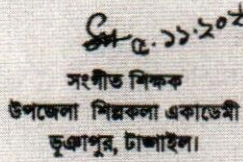 ৫.১১.২০২
সংগীত শিক্ষক
উপজেলা শিল্পকলা একাডেমী
ভূঞাপুর, টাঙ্গাইল।